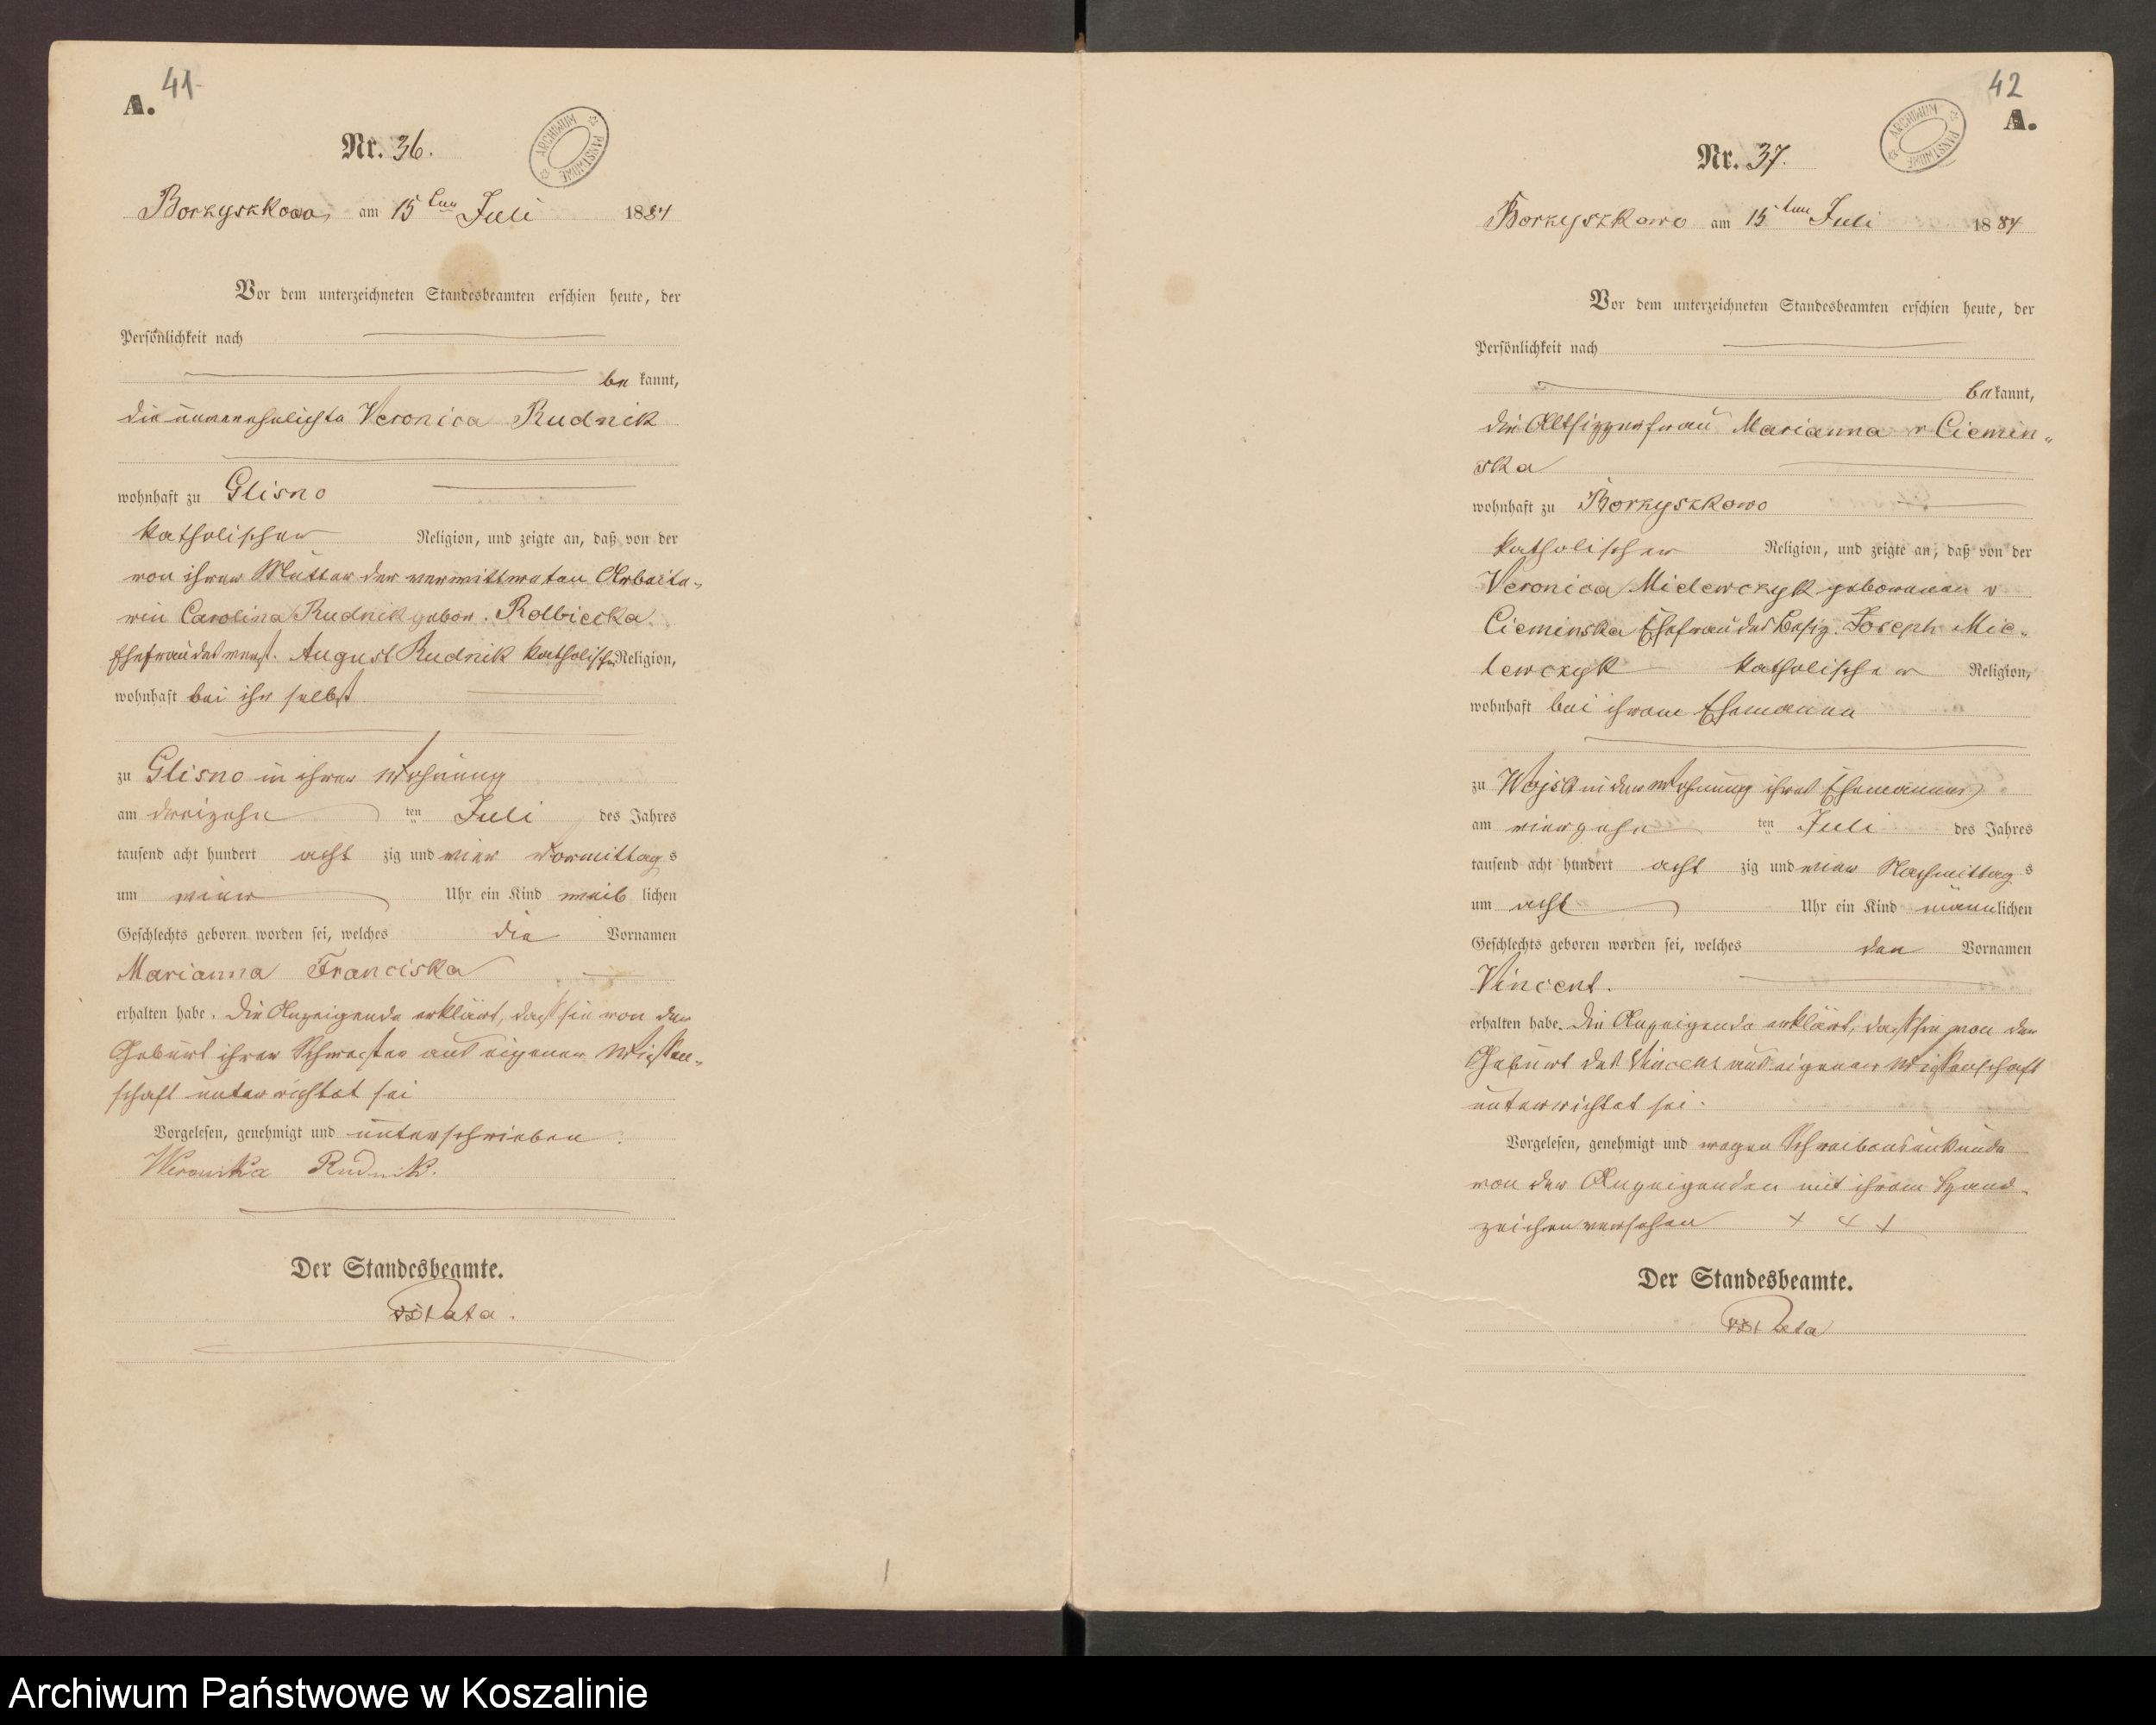 A. 41
Nr. 36.
ARCHIWUM PAŃSTWOWE
Borzyszkowo, am 15ten Juli 1884
Vor dem unterzeichneten Standesbeamten erschien heute, der
Persönlichkeit nach
be kannt,
die unverehelichte Veronica Rudnik
wohnhaft zu Glisno
katholischer Religion, und zeigte an, daß von der
von ihrer Mutter der verwittweten Arbeite-
rin Carolina Rudnik gebor. Rolbiecka
Ehefrau des verst. August Rudnik katholischer Religion,
wohnhaft bei ihr selbst
zu Glisno in ihrer Wohnung
am dreizehn ten Juli des Jahres
tausend acht hundert acht zig und vier Vormittag s
um vier Uhr ein Kind weib lichen
Geschlechts geboren worden sei, welches die Vornamen
Marianna Franciska
erhalten habe. Die Anzeigende erklärt, daß sie von der
Geburt ihrer Schwester aus eigener Wissen-
schaft unterrichtet sei
Vorgelesen, genehmigt und unterschrieben.
Weronika Rudnik.
Der Standesbeamte.
42
A.
Nr. 37.
ARCHIWUM PAŃSTWOWE
Borzyszkowo am 15ten Juli 1884
Vor dem unterzeichneten Standesbeamten erschien heute, der
Persönlichkeit nach
be kannt,
die Altsitzerfrau Marianna v Ciemin-
ska
wohnhaft zu Borzyszkowo
katholischer Religion, und zeigte an, daß von der
Veronica Mielewczyk geborenen v
Cieminska Ehefrau des Besitz. Joseph Mie-
lewczyk katholischer Religion,
wohnhaft bei ihrem Ehemanne
zu Wojsk in der Wohnung ihres Ehemannes
am vierzehn ten Juli des Jahres
tausend acht hundert acht zig und vier Nachmittag s
um acht Uhr ein Kind männlichen
Geschlechts geboren worden sei, welches den Vornamen
Vincent.
erhalten habe. Die Anzeigende erklärt, daß sie von der
Geburt des Vincent aus eigener Wissenschaft
unterrichtet sei.
Vorgelesen, genehmigt und wegen Schreibensunkunde
von der Anzeigenden mit ihrem Hand-
zeichen versehen + + +
Der Standesbeamte.
Archiwum Państwowe w Koszalinie